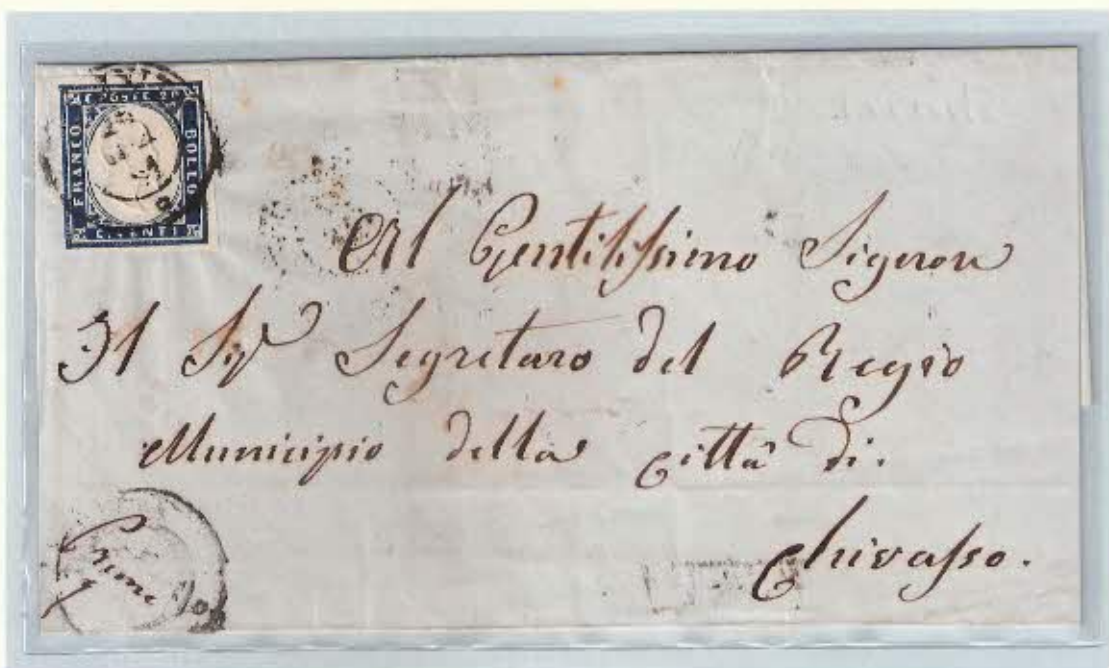 C. POSTE 20
FRANCO
BOLLO
CENTI
Al Gentilissimo Signore
Il Sigr Segretaro del Regio
Municipio della Città di.
Chivasso.